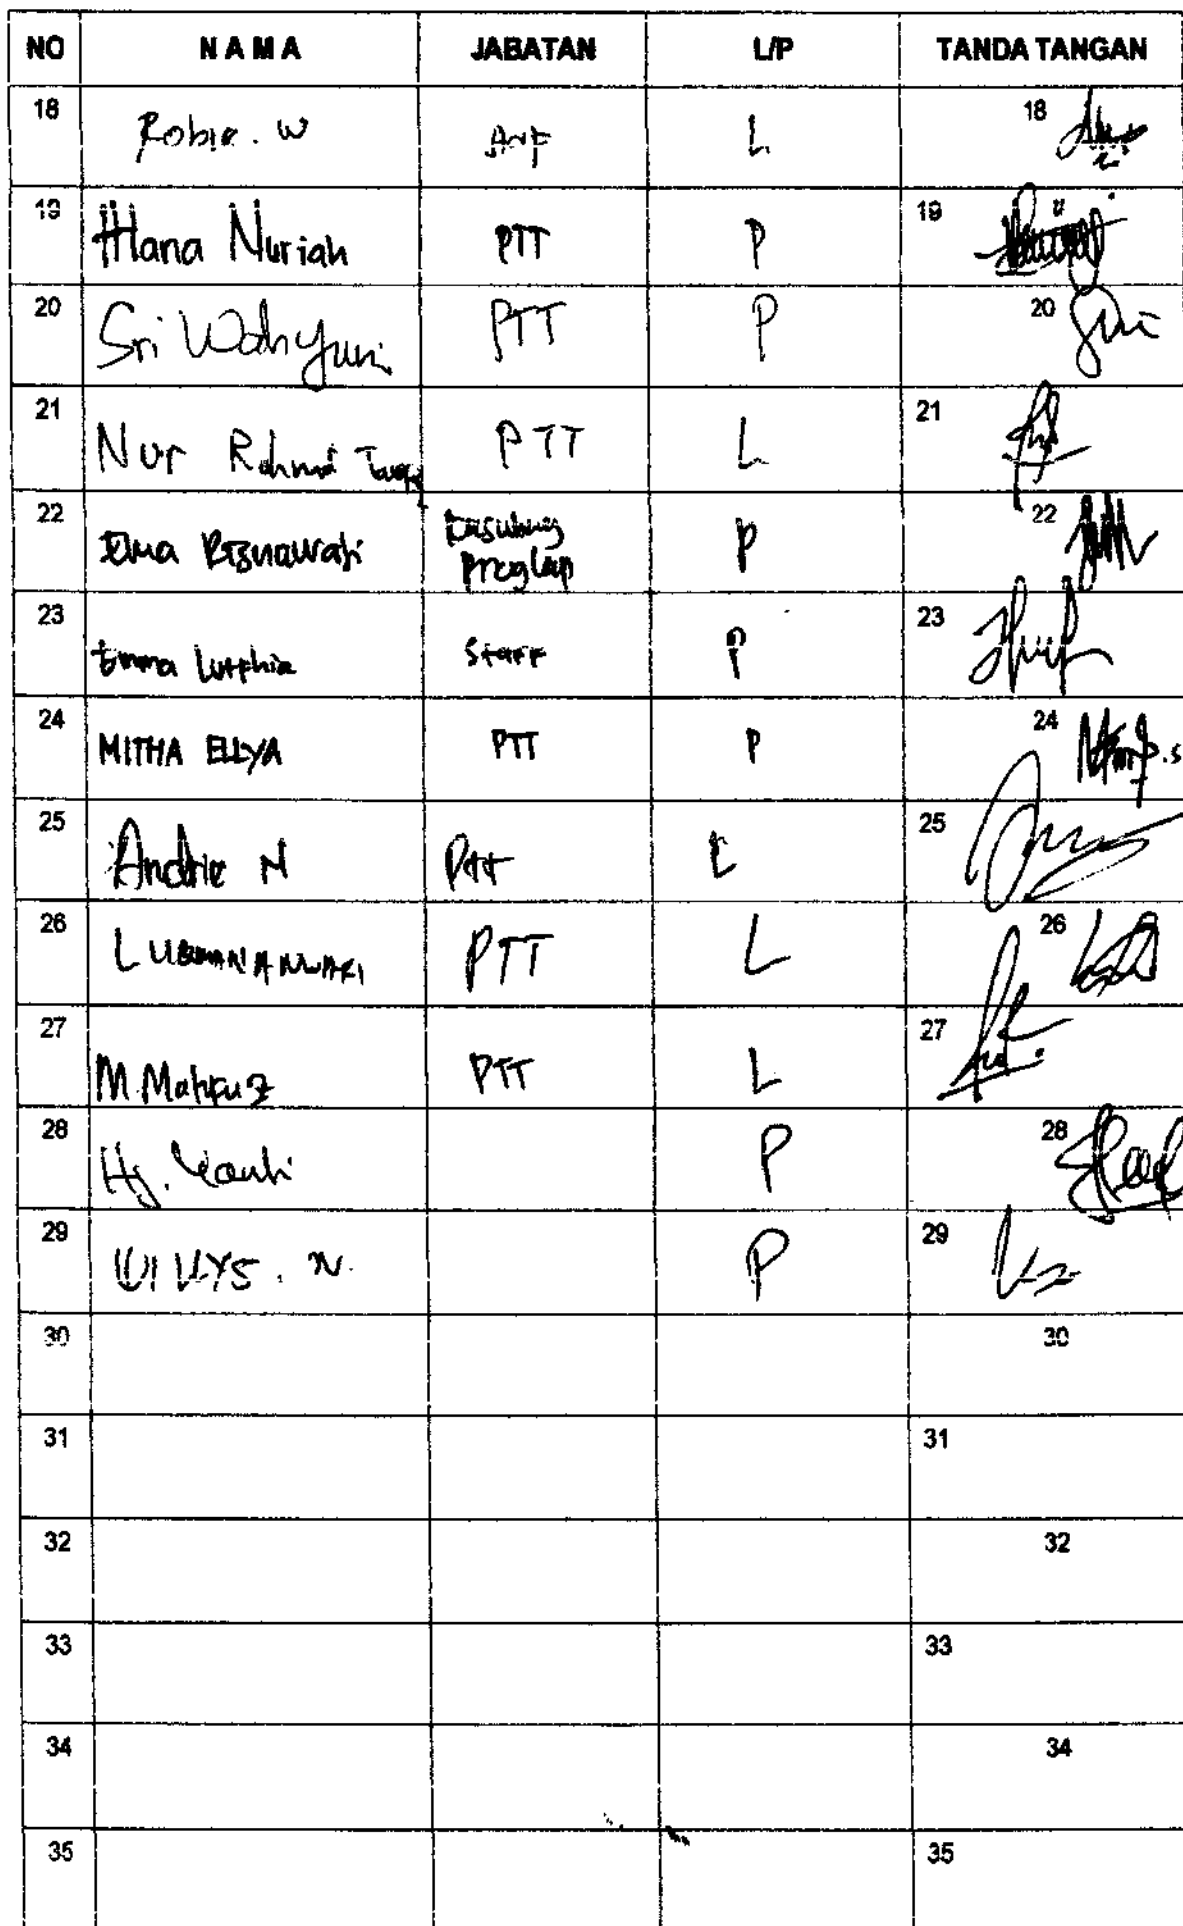 NO NAMA JABATAN L/P TANDA TANGAN
18 Robie. W L 18
19 Hana Nuriah PTT P 19
20 Sri Wahyuni PTT P 20
21 Nur Rahmat PTT L 21
22 P 22
Kasubag
Proglap
23 Emma Lutfhia Staff P 23
24 MITHA ELLYA PTT P 24
25 Andrie N PTT L 25
26 PTT L 26
27 M. Mahfuz PTT L 27
28 Hj. P 28
29 N. P 29
30 30
31 31
32 32
33 33
34 34
35 35